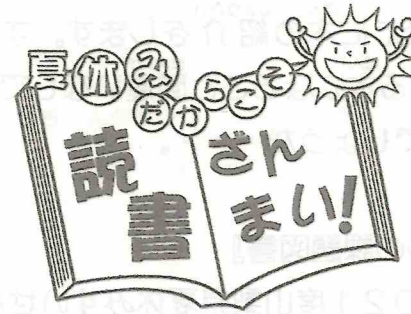 夏休み
だからこそ
読書
ざんまい!